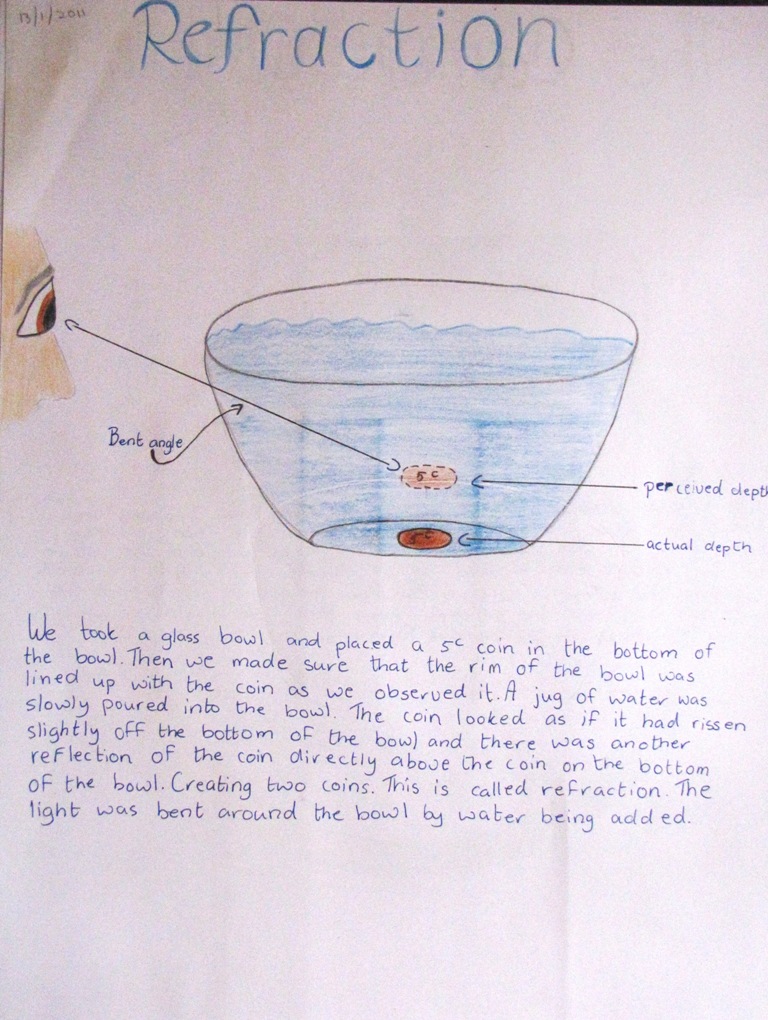 13/1/2011
Refraction
Bent angle
5c
perceived depth
5c
actual depth
We took a glass bowl and placed a 5c coin in the bottom of
the bowl. Then we made sure that the rim of the bowl was
lined up with the coin as we observed it. A jug of water was
slowly poured into the bowl. The coin looked as if it had rissen
slightly off the bottom of the bowl and there was another
reflection of the coin directly above the coin on the bottom
of the bowl. Creating two coins. This is called refraction. The
light was bent around the bowl by water being added.